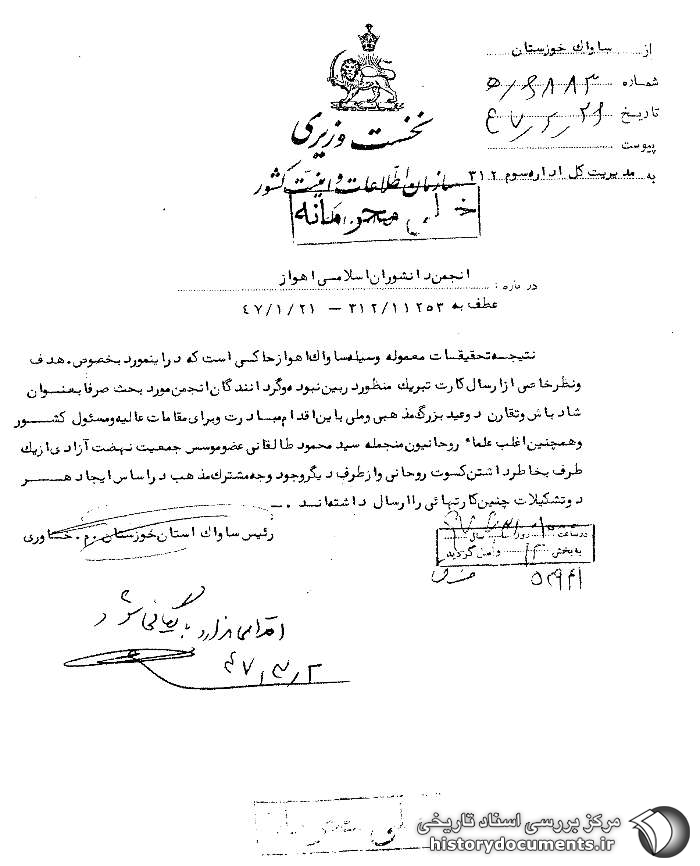 از ساواك خوزستان
شماره ۵/۹۸۸۳
تاریخ ۴۷/۲/۲۹
پیوست
به مدیریت کل اداره سوم ۳۱۲
نخست وزیری
سازمان اطلاعات و امنیت کشور
خیلی محرمانه
در باره: انجمن دانشوران اسلامی اهواز
عطف به ۳۱۲/۱۱۲۵۳ – ۴۷/۱/۲۱
نتیجه تحقیقات معموله وسیله ساواك اهواز حاکی است که در اینمورد بخصوص. هدف
ونظرخاصی از ارسال کارت تبریك منظور ربین نبوده و گردانندگان انجمن مورد بحث صرفاً بعنوان
شادباش و تقارن دوعید بزرگ مذهبی و ملی باین اقدام مبادرت و برای مقامات عالیه و مسئول کشور
و همچنین اغلب علماء روحانیون منجمله سید محمود طالقانی عضو موسس جمعیت نهضت آزادی از یك
طرف بخاطر داشتن کسوت روحانی و از طرف دیگر وجود وجه مشترك مذهب در اساس ایجاد هر
دو تشکیلات چنین کارتهائی را ارسال داشته اند .
رئیس ساواك استان خوزستان.م.خاوری
در ساعت روز سال
به بخش ۳۱۲ وامن گردید
اقدامی ندارد بایگانی شود
۴۷/۳/۲
مرکز بررسی اسناد تاریخی
historydocuments.ir